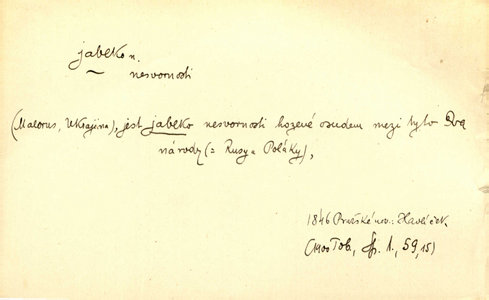 jablko n.
nesvornosti
(Malorus, Ukrajina), jest jablko nesvornosti hozené osudem mezi tyto dva
národy (= Rusy a Poláky),
1846 Pražské nov. Havlíček
Tob., Sp. 1, 59, 15)